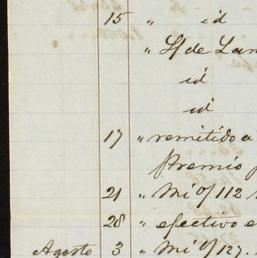 15 " id
" Lf de Lan
id
id
17 " remitido a
Premio
21 " Mi o/ 112
28 " efectivo e
Agosto 3 " Mi o/ 127.